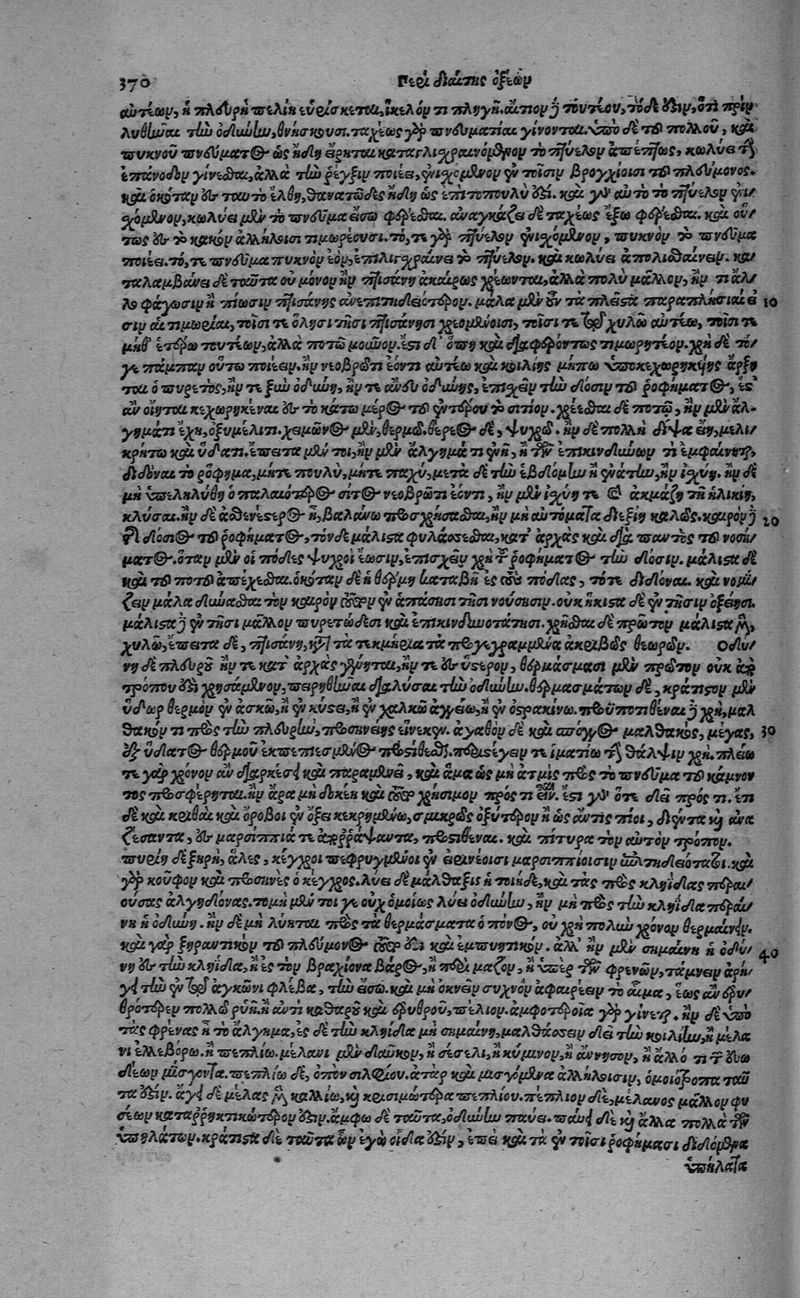 370 Περὶ διαίτης ὀξέων
αὐτέων, ἡ πλευρὴ πελίη εὑρίσκεται, ἴκελόν τι πληγῇ. αἴτιον δὲ τουτέου, τόδε ἐστιν, ὅτι πρὶν
λυθῆναι τὴν ὀδύνην, θνήσκουσι. ταχέως γὰρ πνευματίαι γίνονται. ὑπὸ δὲ τοῦ πολλοῦ, καὶ
πυκνοῦ πνεύματος ὡς ἤδη εἴρηται καταγλιχραινόμενον τὸ πτύελον ἀπέπτως, κωλύει τὴν
ἐπάνοδον γίνεσθαι, ἀλλὰ τὴν ῥέγξιν ποιέει, ἐνισχόμενον ἐν τοῖσιν βρογχίοισι τοῦ πλεύμονος.
καὶ ὁκόταν ἐν τουτο ἔλθῃ, θανατῶδες ἤδη ὡς ἐπιτοπουλὺ ἐστί. καὶ γὰρ αὐτὸ τὸ πτύελον ἐνι/
σχόμενον, κωλύει μὲν τὸ πνεῦμα εἴσω φέρεσθαι. ἀναγκάζει δὲ ταχέως ἔξω φέρεσθαι. καὶ οὕ/
τως ἐν τὸ κακὸν ἀλλήλοισι τιμωρέουσι. τό, τε γὰρ πτύελον ἐνισχόμενον, πυκνὸν τὸ πνεῦμα
ποιέει. τό, τε πνεῦμα πυκνὸν ἐὸν, ἐπιγλιχραίνει τὸ πτύελον. καὶ κωλύει ἀπολισθαίνειν. κα/
ταλαμβάνει δὲ ταῦτα οὐ μόνον ἢν πτισάνῃ ἀκαίρως χρέωνται, ἀλλὰ πολὺ μᾶλλον, ἤν τι ἄλ/
λο φάγωσιν ἢ πίωσιν πτισάνης ἀνεπιτηδειότερον. μάλα μὲν οὖν τὰ πλεῖστα παραπλήσιαί ε 10
σιν αἱ τιμωρίαι, τοῖσί τε ὅλῃσι τῇσι πτισάνῃσι χρεομένοισι, τοῖσί τε τῷ χυλῷ αὐτέω, τοῖσί τε
μηδ' ἑτέρῳ τουτέων, ἀλλὰ ποτῷ μοῦνον. ἔστι δ' ὅπη καὶ διαφερόντως τιμωρητέον. χρὴ δὲ τό/
γε πάμπαν οὕτω ποιέειν. ἢν νεοβρῶτι ἐόντι αὐτέω καὶ κοιλίης μήπω ὑποκεχωρηκυίης ἄρξη
ται ὁ πυρετὸς, ἤν τε ξὺν ὀδύνῃ, ἤν τε ἄνευ ὀδύνης, ἐπισχεῖν τὴν δόσιν τοῦ ῥοφήματος, ἔς τ'
ἂν οἴηται κεχωρηκέναι ἐν τὸ κάτω μέρος τοῦ ἐντέρου τὸ σιτίον. χρέεσθαι δὲ ποτῷ, ἢν μὲν ἄλ-
γημά τι ἔχῃ, ὀξυμέλιτι. χειμῶνος μὲν, θερμῷ. θέρεος δὲ, ψυχρῷ. ἢν δὲ πολλὴ δίψα ἔῃ, μελι/
κρήτῳ καὶ ὕδατι. ἔπειτα μέν τοι, ἢν μὲν ἄλγημά τι ἐνῇ, ἢ τῶν ἐπικινδύνων τι ἐμφαίνηται,
διδόναι τὸ ῥόφημα, μήτε πουλὺ, μήτε παχὺ, μετὰ δὲ τὴν ἑβδόμην ἢ ἐνάτην, ἢν ἰσχύῃ. ἢν δὲ
μὴ ὑπεληλύθῃ ὁ παλαιότερος σῖτος νεοβρῶτι ἐόντι, ἢν μὲν ἰσχύῃ τε καὶ ἀκμάζῃ τῇ ἡλικίῃ,
κλύσαι. ἢν δὲ ἀσθενέστερος ᾖ, βαλάνῳ προσχρήσασθαι, ἢν μὴ αὐτόματα διεξίῃ καλῶς. καιρὸν δὲ 20
τῆς δόσιος τοῦ ῥοφήματος, τόνδε μάλιστα φυλάσσεσθαι, κατ' ἀρχὰς καὶ διὰ παντὸς τοῦ νοσή/
ματος. ὅταν μὲν οἱ πόδες ψυχροὶ ἔωσιν, ἐπισχεῖν χρὴ τοῦ ῥοφήματος τὴν δόσιν. μάλιστα δὲ
καὶ τοῦ ποτοῦ ἀπέχεσθαι. ὁκόταν δὲ ἡ θέρμη καταβῇ ἐς τοὺς πόδας, τότε διδόναι. καὶ νομί/
ζειν μάλα δύνασθαι τὸν καιρὸν τοῦτον ἐν ἁπάσῃσι τῇσι νούσῃσιν. οὐκ ἥκιστα δὲ ἐν τῇσιν ὀξείῃσι.
μάλιστα δὲ ἐν τῇσι μᾶλλον πυρετώδεσι καὶ ἐπικινδυνοτάτῃσι. χρῆσθαι δὲ πρῶτον μάλιστα μὲν,
χυλῷ, ἔπειτα δὲ, πτισάνῃ, κατὰ τὰ τεκμήρια τὰ προγεγραμμένα ἀκριβῶς θεωρῶν. Ὀδύ/
νη δὲ πλευροῦ ἤν τε κατ' ἀρχὰς γένηται, ἤν τε ἐν ὕστερον, θερμάσμασι μὲν πρῶτον οὐκ ἀπὸ
τρόπου ἐστὶ χρησάμενον, πειρηθῆναι διαλῦσαι τὴν ὀδύνην. θερμασμάτων δὲ, κράτιστον μὲν
ὕδωρ θερμὸν ἐν ἀσκῷ, ἢ ἐν κύστει, ἢ ἐν χαλκῷ ἀγγείῳ, ἢ ἐν ὀστρακίνῳ. προϋποτιθέναι δὲ χρὴ, μαλ
θακόν τι πρὸς τὴν πλευρὴν, προσηνείης εἵνεκεν. ἀγαθὸν δὲ καὶ σπόγγος μαλθακὸς, μέγας, 30
ἐξ ὕδατος θερμοῦ ἐκπεπιεσμένος προστίθεσθαι. περιστέγειν τε ἱματίῳ τὴν θάλψιν χρή. πλείω
τε γὰρ χρόνον ἂν διαρκέσει καὶ παραμενεῖ, καὶ ἅμα ὡς μὴ ἀτμὶς πρὸς τὸ πνεῦμα τοῦ κάμνον
τος προσφέρηται. ἢν ἄρα μὴ δοκέῃ καὶ τοῦτο χρήσιμον πρός τι εἶναι. ἔστι γὰρ ὅτε δεῖ πρός τι. ἔτι
δὲ καὶ κριθαὶ καὶ ὄροβοι ἐν ὄξει κεκρημένῳ, σμικρῷς ὀξύτερον ἢ ὡς ἄν τις πίοι, διέντα καὶ ἀνα
ζέσαντα, ἐν μαρσίππιά τε ἀπορράψαντα, προστιθέναι. καὶ πίτυρα τὸν αὐτὸν τρόπον.
πυρίη δὲ ξηρὴ, ἅλες, κέγχροι πεφρυγμένοι ἐν εἰρινέοισι μαρσιππίοισιν ἐπιτηδειόταται. καὶ
γὰρ κοῦφον καὶ προσηνὲς ὁ κέγχρος. λύει δὲ μάλθαξις ἡ τοιήδε, καὶ τὰς πρὸς κληῖδας περαι/
ούσας ἀλγηδόνας. τομὴ μέν τοι γε οὐχ ὁμοίως λύει ὀδύνην, ἢν μὴ πρὸς τὴν κληῖδα περαί/
νῃ ἡ ὀδύνη. ἢν δὲ μὴ λύηται πρὸς τὰ θερμάσματα ὁ πόνος, οὐ χρὴ πολὺν χρόνον θερμαίνειν.
καὶ γὰρ ξηραντικὸν τοῦ πλεύμονος τοῦτο ἐστι καὶ ἐμπυητικόν. ἀλλ' ἢν μὲν σημαίνῃ ἡ ὀδύ/ 40
νη ἐν τὴν κληῖδα, ἢ ἐς τὸν βραχίονα βάρος, ἢ περὶ μαζὸν, ἢ ὑπὲρ τῶν φρενῶν, τάμνειν ἀρή/
γει τὴν ἐν τῷ ἀγκῶνι φλέβα, τὴν εἴσω. καὶ μὴ ὀκνεῖν συχνὸν ἀφαιρέειν τὸ αἷμα, ἕως ἂν ἐρυ/
θρότερον πολλῷ ῥυῇ. ἢ ἀντὶ καθαροῦ καὶ ἐρυθροῦ, πέλιον. ἀμφοτέροῖα γὰρ γίνεται. ἢν δὲ ὑπὸ
τὰς φρένας ᾖ τὸ ἄλγημα, ἐς δὲ τὴν κληῖδα μὴ σημαίνῃ, μαλθάσσειν δεῖ τὴν κοιλίην, ἢ μέλα
νι ἑλλεβόρῳ. ἢ πεπλίῳ. μέλανι μὲν δαῦκον, ἢ σέσελι, ἢ κύμινον, ἢ ἄννησον, ἢ ἄλλό τι τῶν εὐω
δέων μίσγοντα. πεπλίῳ δὲ, ὀπὸν σιλφίου. ἀτὰρ καὶ μισγόμενα ἀλλήλοισιν, ὁμοιότροπα ταῦ
τα ἐστιν. ἄγει δὲ μέλας μὲν καλλίω, καὶ κρισιμώτερα πεπλίου. πέπλιον δὲ, μέλανος μᾶλλον φυ
σέων καταρρηκτικώτερον ἐστιν. ἄμφω δὲ ταῦτα, ὀδύνην παύει. παύει δὲ καὶ ἄλλα πολλὰ τῶν
ὑπηλάτων. κράτιστα δὲ ταῦτα ὧν ἐγὼ οἶδα ἐστιν, ἐπεὶ καὶ τὰ ἐν τοῖσι ῥοφήμασι διδόμενα
ὑπήλατα